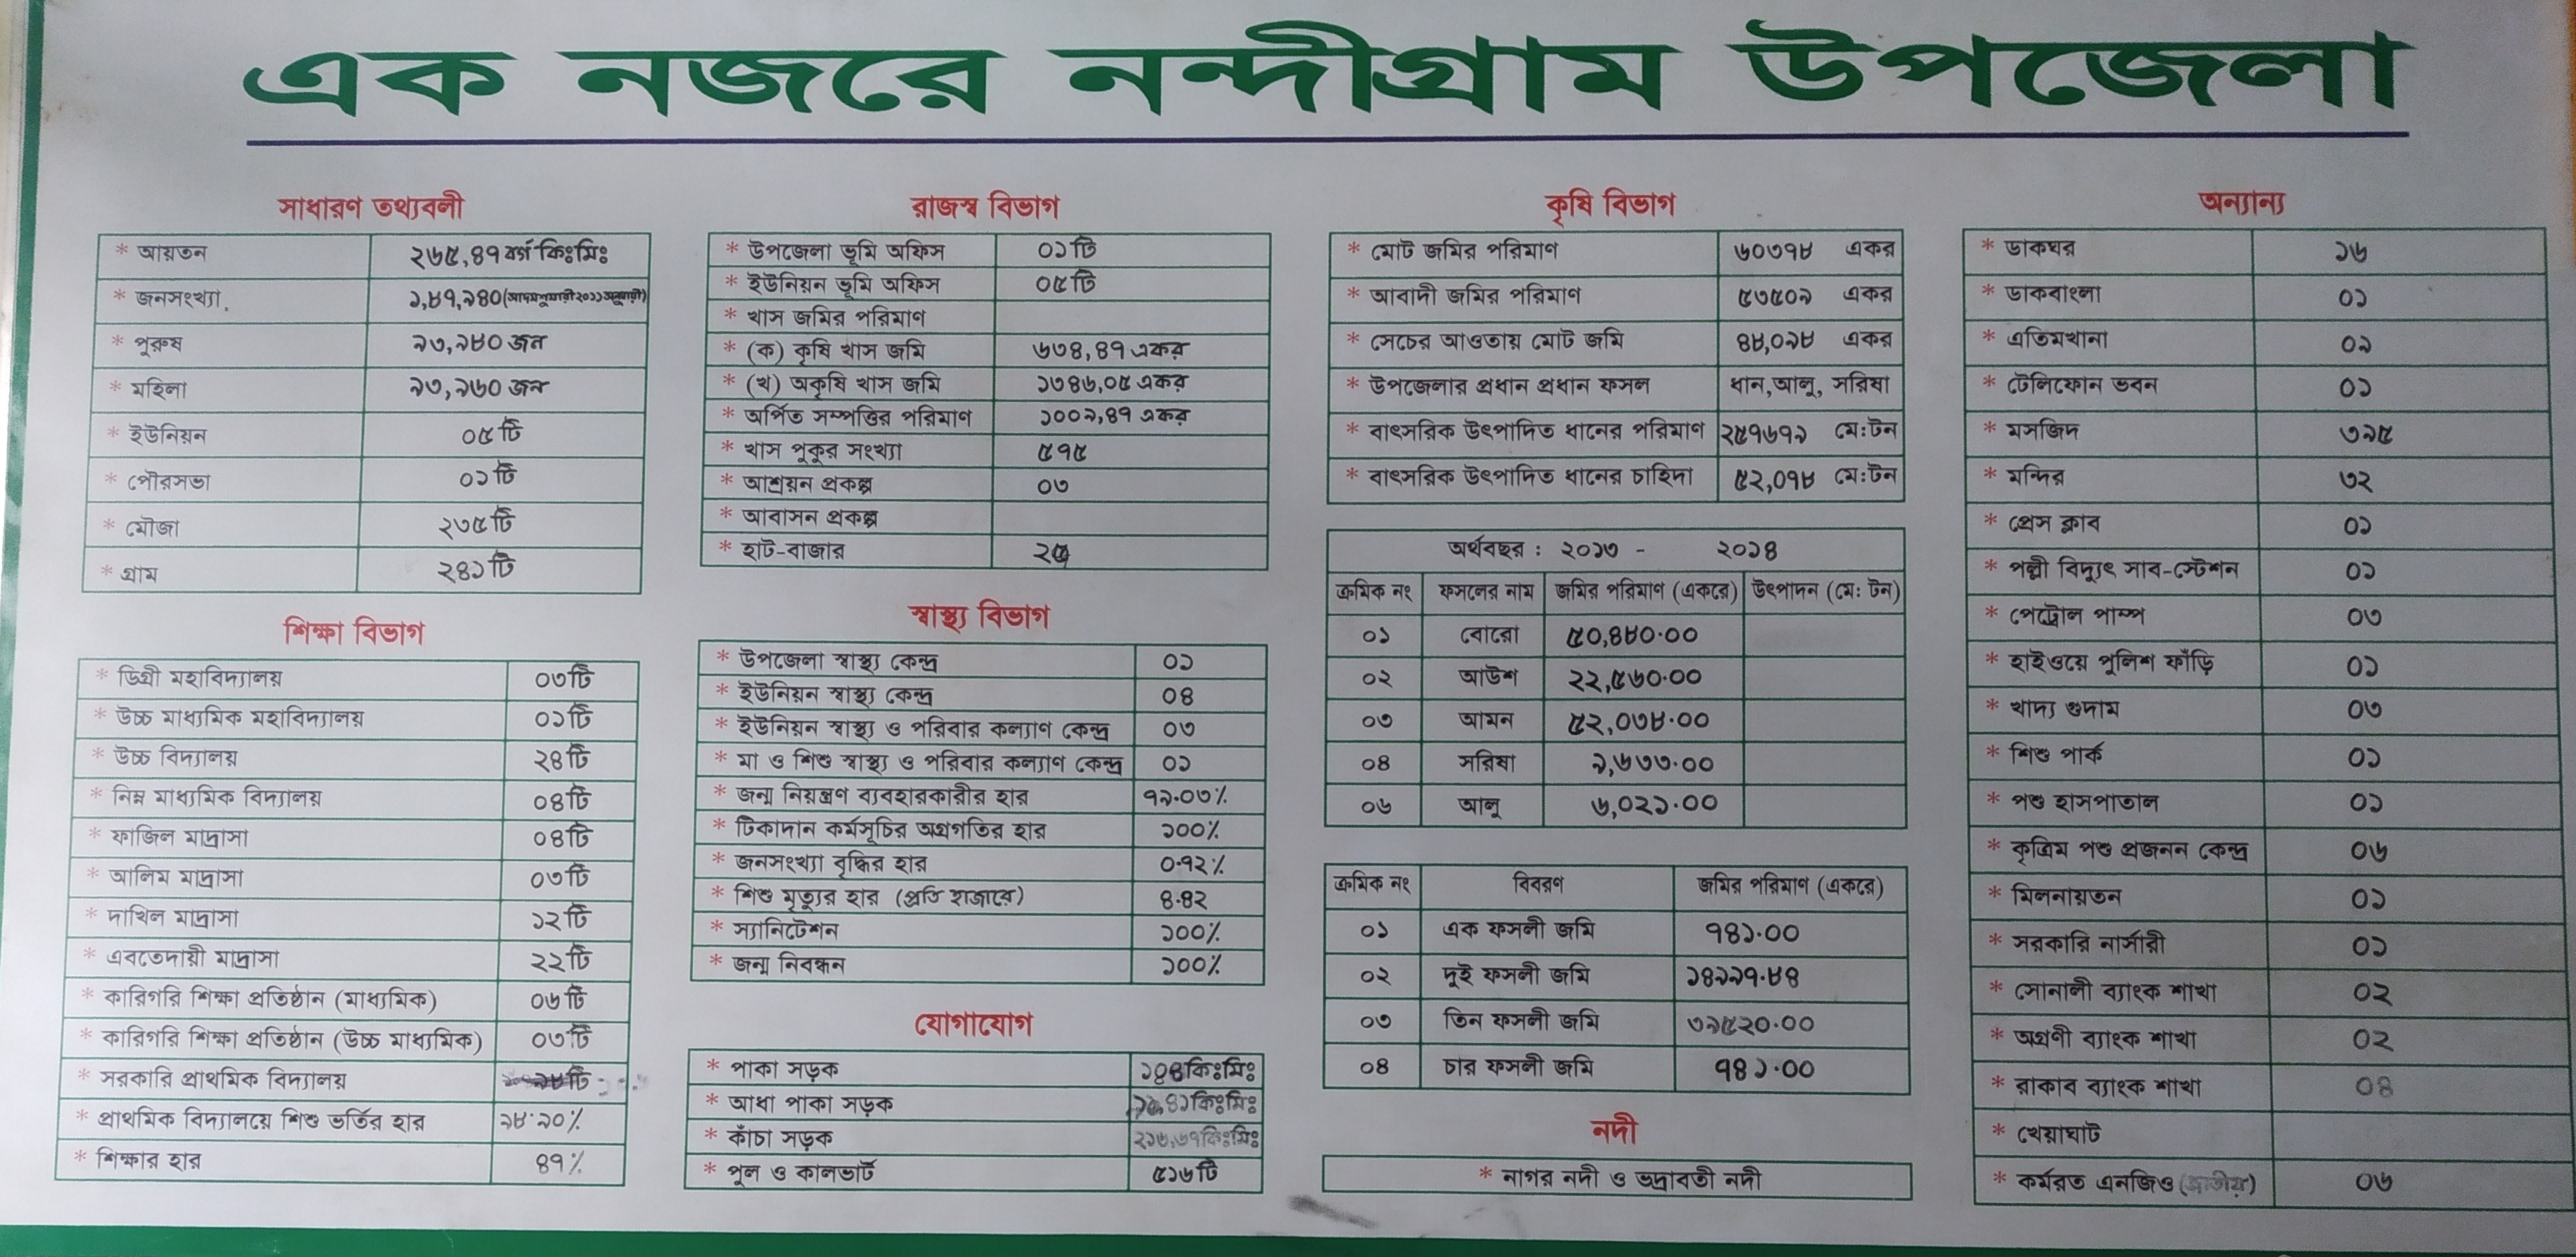 এক নজরে নন্দীগ্রাম উপজেলা
সাধারণ তথ্যবলী
* আয়তন ২৬৫,৪৭ বর্গ কিঃমিঃ
* জনসংখ্যা. ১,৮৭,৯৪০ (আদমশুমারী ২০১১ অনুযায়ী)
* পুরুষ ৯৩,৯৮০ জন
* মহিলা ৯৩,৯৬০ জন
* ইউনিয়ন ০৫ টি
* পৌরসভা ০১ টি
* মৌজা ২৩৫ টি
* গ্রাম ২৪১ টি
শিক্ষা বিভাগ
* ডিগ্রী মহাবিদ্যালয় ০৩টি
* উচ্চ মাধ্যমিক মহাবিদ্যালয় ০১টি
* উচ্চ বিদ্যালয় ২৪টি
* নিম্ন মাধ্যমিক বিদ্যালয় ০৪টি
* ফাজিল মাদ্রাসা ০৪টি
* আলিম মাদ্রাসা ০৩টি
* দাখিল মাদ্রাসা ১২টি
* এবতেদায়ী মাদ্রাসা ২২টি
* কারিগরি শিক্ষা প্রতিষ্ঠান (মাধ্যমিক) ০৬টি
* কারিগরি শিক্ষা প্রতিষ্ঠান (উচ্চ মাধ্যমিক) ০৩টি
* সরকারি প্রাথমিক বিদ্যালয় টি
* প্রাথমিক বিদ্যালয়ে শিশু ভর্তির হার ৯৮.৯০%
* শিক্ষার হার ৪৭%
রাজস্ব বিভাগ
* উপজেলা ভূমি অফিস ০১ টি
* ইউনিয়ন ভূমি অফিস ০৫ টি
* খাস জমির পরিমাণ
* (ক) কৃষি খাস জমি ৬৩৪,৪৭ একর
* (খ) অকৃষি খাস জমি ১৩৪৬,০৫ একর
* অর্পিত সম্পত্তির পরিমাণ ১০০৯,৪৭ একর
* খাস পুকুর সংখ্যা ৫৭৫
* আশ্রয়ন প্রকল্প ০৩
* আবাসন প্রকল্প
* হাট-বাজার
স্বাস্থ্য বিভাগ
* উপজেলা স্বাস্থ্য কেন্দ্র ০১
* ইউনিয়ন স্বাস্থ্য কেন্দ্র ০৪
* ইউনিয়ন স্বাস্থ্য ও পরিবার কল্যাণ কেন্দ্র ০৩
* মা ও শিশু স্বাস্থ্য ও পরিবার কল্যাণ কেন্দ্র ০১
* জন্ম নিয়ন্ত্রণ ব্যবহারকারীর হার ৭৯.০৩%
* টিকাদান কর্মসূচির অগ্রগতির হার ১০০%
* জনসংখ্যা বৃদ্ধির হার ০.৭২%
* শিশু মৃত্যুর হার (প্রতি হাজারে) ৪.৪২
* স্যানিটেশন ১০০%
* জন্ম নিবন্ধন ১০০%
যোগাযোগ
* পাকা সড়ক কিঃমিঃ
* আধা পাকা সড়ক কিঃমিঃ
* কাঁচা সড়ক ২১৬.৬৭কিঃমিঃ
* পুল ও কালভার্ট ৫১৬ টি
কৃষি বিভাগ
* মোট জমির পরিমাণ ৬০৩৭৮ একর
* আবাদী জমির পরিমাণ ৫৩৫০৯ একর
* সেচের আওতায় মোট জমি ৪৮,০৯৮ একর
* উপজেলার প্রধান প্রধান ফসল ধান,আলু, সরিষা
* বাৎসরিক উৎপাদিত ধানের পরিমাণ ২৫৭৬৭৯ মে:টন
* বাৎসরিক উৎপাদিত ধানের চাহিদা ৫২,০৭৮ মে:টন
অর্থবছর : ২০১৩ - ২০১৪
ক্রমিক নং ফসলের নাম জমির পরিমাণ (একরে) উৎপাদন (মে: টন)
০১ বোরো ৫০,৪৮০.০০
০২ আউশ ২২,৫৬০.০০
০৩ আমন ৫২,০৩৮.০০
০৪ সরিষা ৯,৬৩৩.০০
০৬ আলু ৬,০২১.০০
ক্রমিক নং বিবরণ জমির পরিমাণ (একরে)
০১ এক ফসলী জমি ৭৪১.০০
০২ দুই ফসলী জমি ১৪৯৯৭.৮৪
০৩ তিন ফসলী জমি ৩৯৫২০.০০
০৪ চার ফসলী জমি ৭৪১.০০
নদী
* নাগর নদী ও ভদ্রাবতী নদী
অন্যান্য
* ডাকঘর ১৬
* ডাকবাংলা ০১
* এতিমখানা ০৯
* টেলিফোন ভবন ০১
* মসজিদ ৩৯৫
* মন্দির ৩২
* প্রেস ক্লাব ০১
* পল্লী বিদ্যুৎ সাব-স্টেশন ০১
* পেট্রোল পাম্প ০৩
* হাইওয়ে পুলিশ ফাঁড়ি ০১
* খাদ্য গুদাম ০৩
* শিশু পার্ক ০১
* পশু হাসপাতাল ০১
* কৃত্রিম পশু প্রজনন কেন্দ্র ০৬
* মিলনায়তন ০১
* সরকারি নার্সারী ০১
* সোনালী ব্যাংক শাখা ০২
* অগ্রণী ব্যাংক শাখা ০২
* রাকাব ব্যাংক শাখা ০৪
* খেয়াঘাট
* কর্মরত এনজিও (জাতীয়) ০৬